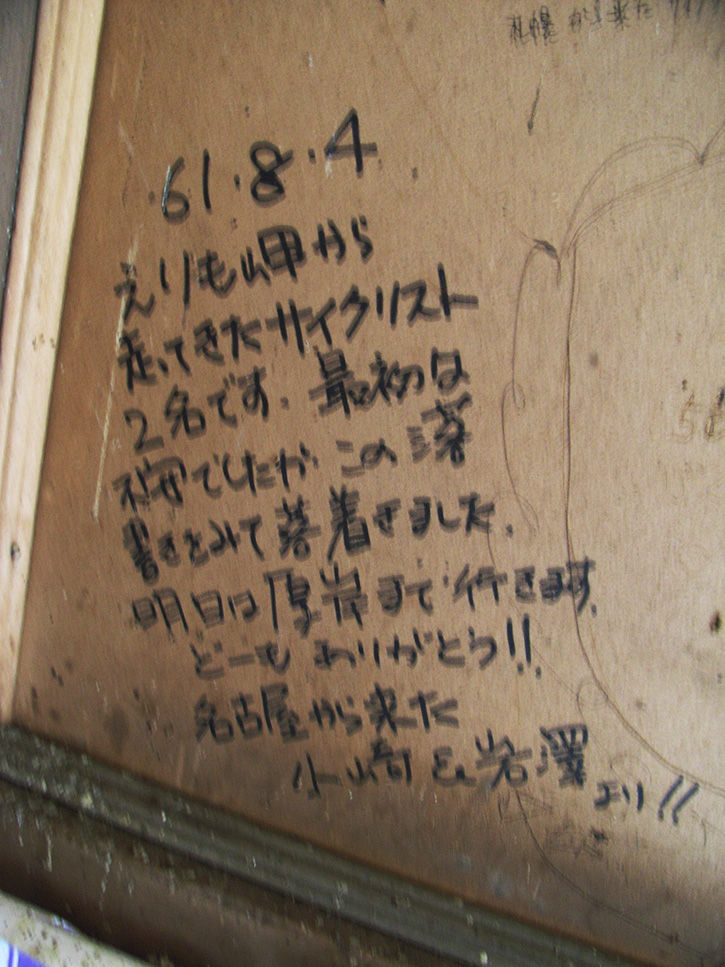 札幌から来た
61.8.4.
えりも岬から
走ってきたサイクリスト
2名です. 最初は
不安でしたが この落
書きをみて落着きました.
明日は厚岸まで行きます.
どーも ありがとう!!
名古屋から来た
小崎 & 岩澤より!!